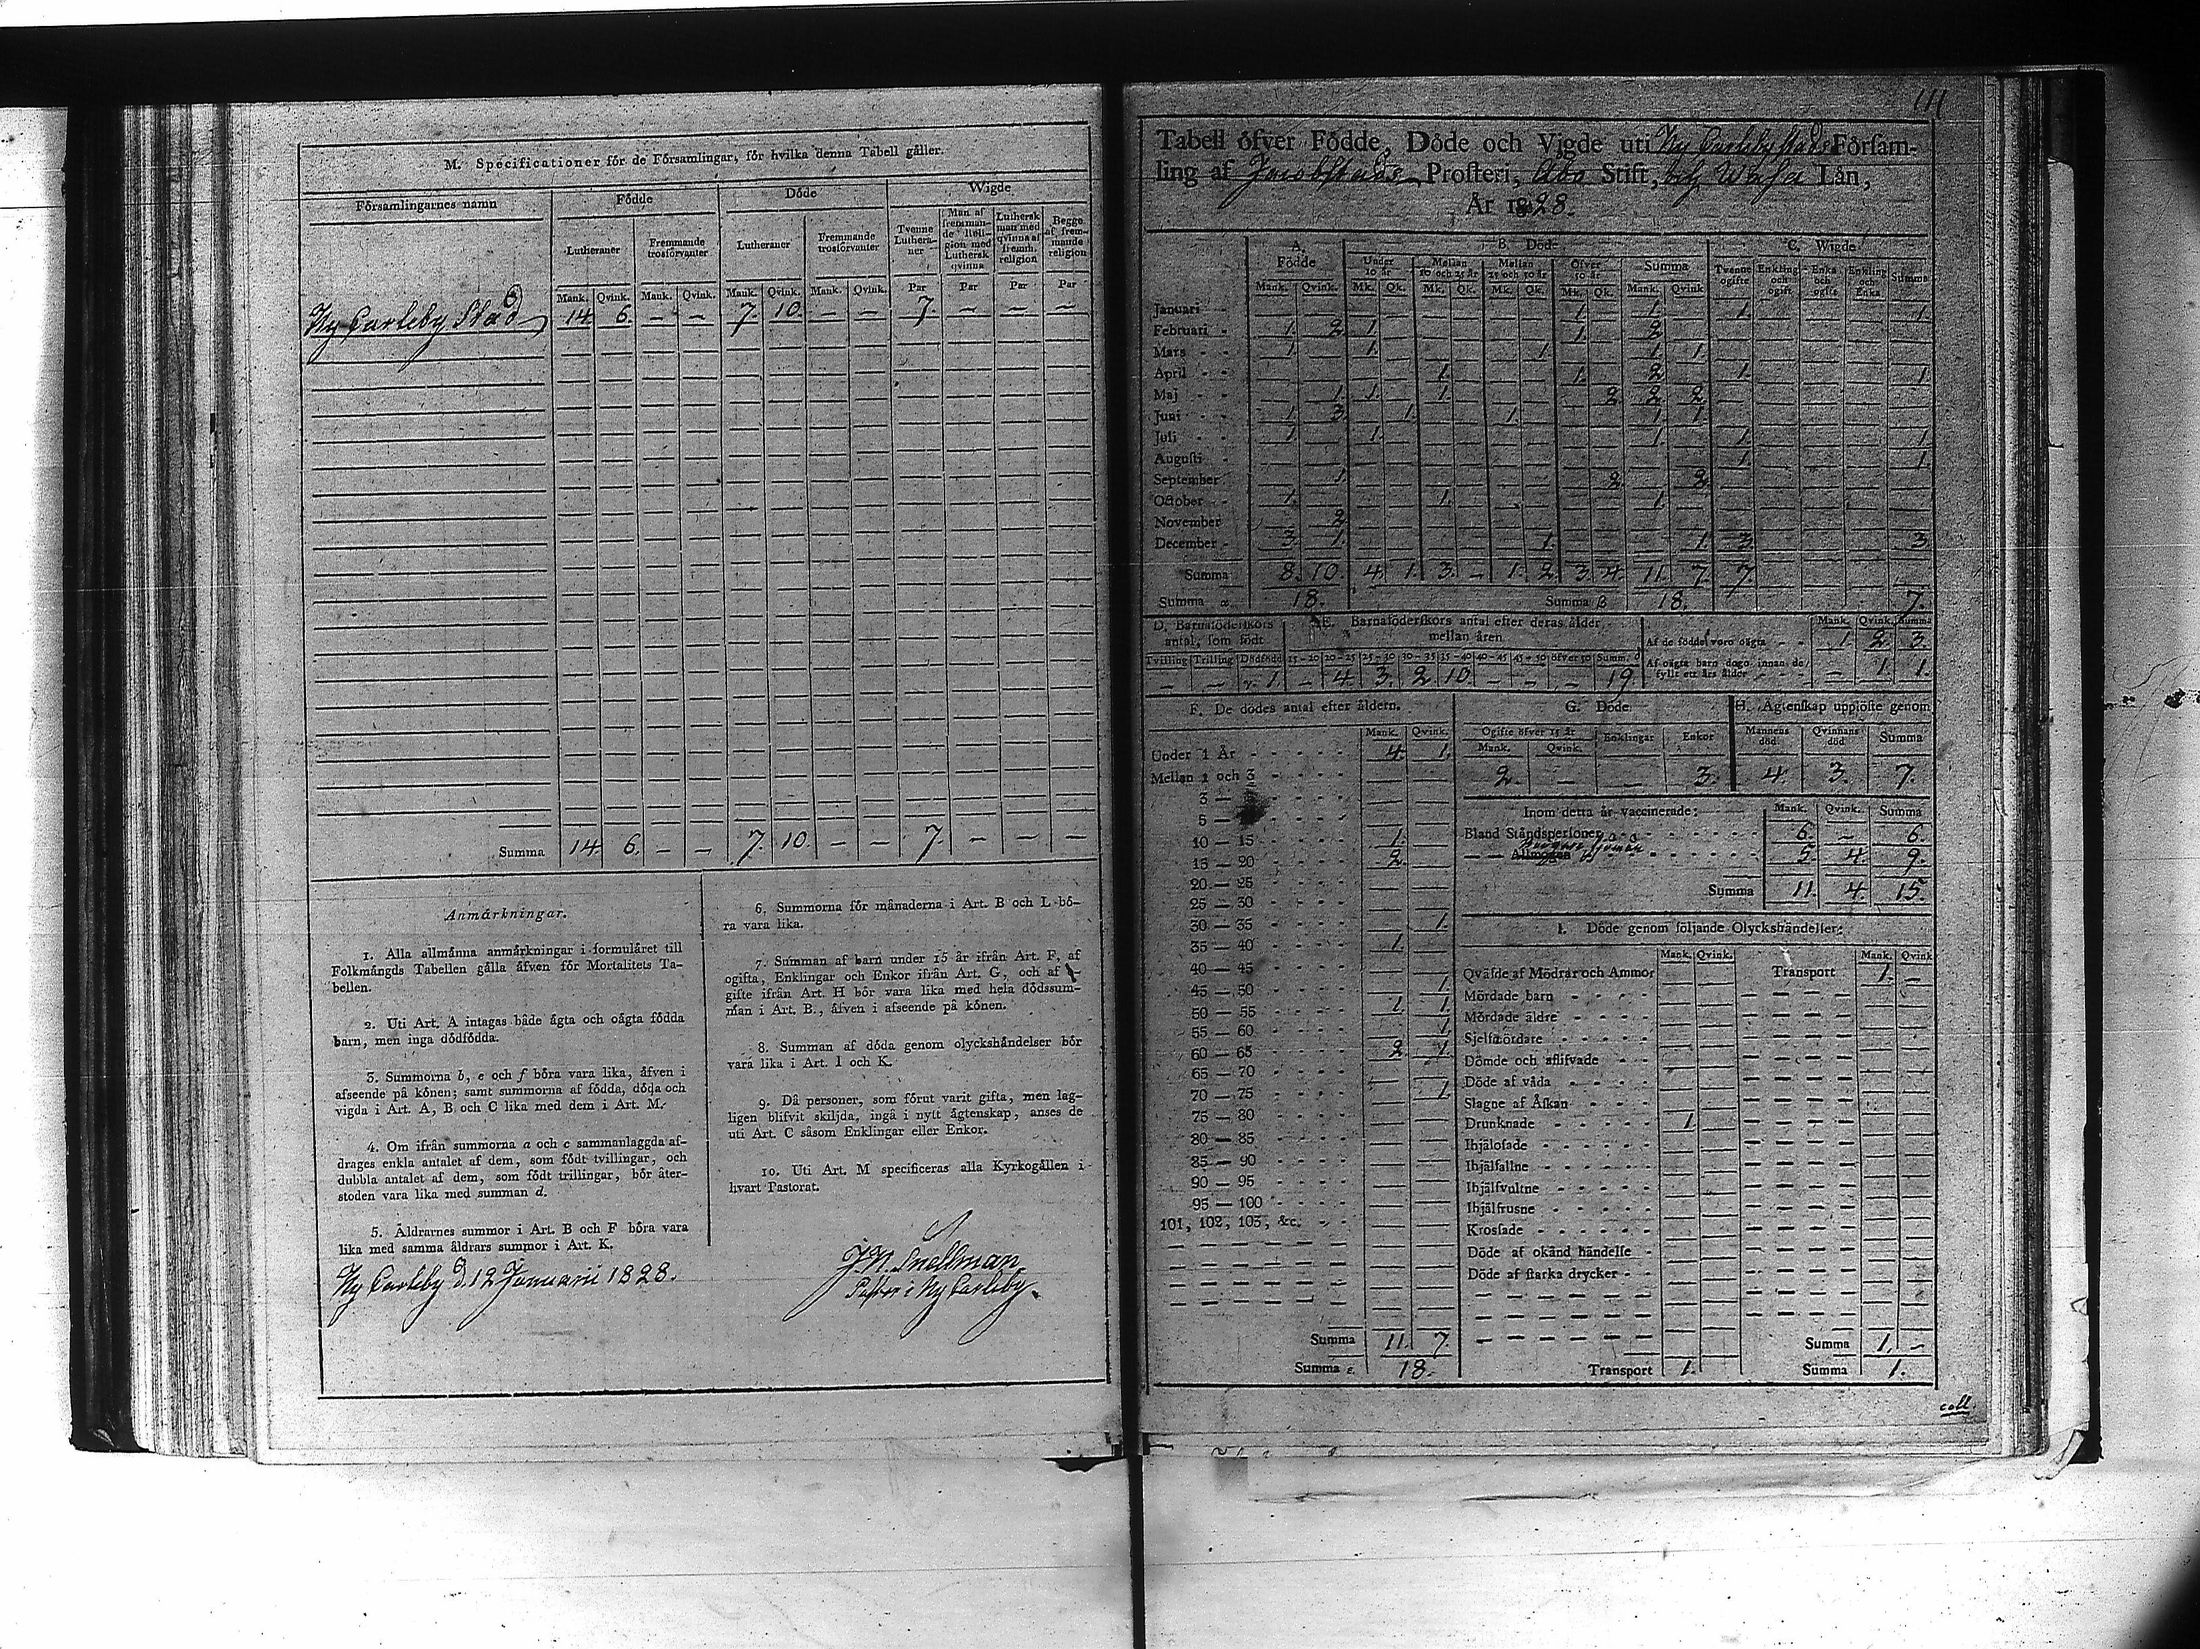 M. Specificationer för de Församlingar, för hvilka denna Tabell gäller.
Församlingarnes namn Födde Döde Wigde
Lutheraner Fremmande trosförvanter Lutheraner Fremmande trosförvanter Tvenne Lutheraner Man af fremmande Religion med Luthersk qvinna Luthersk man med qvinna af fremm. religion Begge af fremmande religion
Mank. Qvink. Mank. Qvink. Mank. Qvink. Mank. Qvink. Par Par Par Par
Ny Carleby Stad 14. 6. — — 7. 10. — — 7. — — —
Summa 14. 6. — — 7. 10. — — 7. — — —
Anmärkningar.
1. Alla allmänna anmärkningar i formuläret till
Folkmängds Tabellen gälla äfven för Mortalitets Ta-
bellen.
2. Uti Art. A intagas både ägta och oägta födda
barn, men inga dödfödda.
3. Summorna b, e och f böra vara lika, äfven i
afseende på könen; samt summorna af födda, döda och
vigda i Art. A, B och C lika med dem i Art. M.
4. Om ifrån summorna a och c sammanlaggda af-
drages enkla antalet af dem, som födt tvillingar, och
dubbla antalet af dem, som födt trillingar, bör åter-
stoden vara lika med summan d.
5. Åldrarnes summor i Art. B och F böra vara
lika med samma åldrars summor i Art. K.
Ny Carleby d. 12 Januarii 1828.
6. Summorna för månaderna i Art. B och L bö-
ra vara lika.
7. Summan af barn under 15 år ifrån Art. F, af
ogifta, Enklingar och Enkor ifrån Art. G, och af
gifte ifrån Art. H bör vara lika med hela dödssum-
man i Art. B., äfven i afseende på könen.
8. Summan af döda genom olyckshändelser bör
vara lika i Art. I och K.
9. Då personer, som förut varit gifta, men lag-
ligen blifvit skiljda, ingå i nytt ägtenskap, anses de
uti Art. C såsom Enklingar eller Enkor.
10. Uti Art. M specificeras alla Kyrkogällen i
hvart Pastorat.
J N. Snellman
Pastor i Ny Carleby.
111
Tabell öfver Födde, Döde och Vigde uti Ny Carleby stads Församling
af Jacobstads Prosteri, Åbo Stift, Wasa Län,
År 1828.
A. Födde B. Död- C. Wigde
Under 10 år Mellan 10 och 25 år Mellan 25 och 50 år Öfver 50 år Summa Tvenne ogifte Enkling och ogift Enka och ogift Enkling och Enka Summa
Mank. Qvink. Mk. Qk. Mk. Qk. Mk. Qk. Mk. Qk. Mank. Qvink
Januari 1. 1. 1. 1.
Februari 1. 2. 1. 1. 2.
Mars 1. 1. 1. 1. 1.
April 1. 1. 2. 1. 1.
Maj 1. 1. 1. 2. 2. 2.
Juni 1. 3. 1. 1. 1. 1.
Juli 1. 1. 1. 1. 1.
Augusti 1. 1.
September 1. 2. 2.
October 1. 1. 1.
November 2.
December 3. 1. 1. 1. 3. 3
Summa 8. 10. 4. 1. 3. — 1. 2. 3. 4. 11. 7. 7.
Summa α 18. Summa β 18. 7.
D. Barnaföderskors antal, som födt
Tvilling Trilling Dödfödde
— — 1
E. Barnaföderskors antal efter deras ålder mellan åren
15-20 20-25 25-30 30-35 35-40 40-45 45-50 öfver 50 Summ.
— 4. 3. 2 10. — — — 19.
Mank. Qvink. Summa
Af de födde voro oägta 1. 2. 3.
Af oägta barn dogo innan de fyllt ett års ålder — 1. 1.
F. De dödes antal efter åldern.
Mank. Qvink.
Under 1 År 4. 1.
Mellan 1 och 3
3 —
5 —
10 — 15 1.
15 — 20 2.
20 — 25
25 — 30
30 — 35 1.
35 — 40 1.
40 — 45
45 — 50 1.
50 — 55 1. 1.
55 — 60 1.
60 — 65 2. 1.
65 — 70
70 — 75 1.
75 — 80
80 — 85
85 — 90
90 — 95
95 — 100
101, 102, 103, &c.
Summa 11. 7.
Summa ε. 18.
G. Döde
Ogifte öfver 15 år Enklingar Enkor
Mank. Qvink.
2. — — 3.
H. Ägtenskap upplöste genom
Mannens död Qvinnans död Summa
4. 3. 7.
Inom detta år vaccinerade: Mank. Qvink. Summa
Bland Ståndspersoner 6. — 6.
— — Allmogen 5. 4. 9.
Summa 11. 4. 15.
I. Döde genom följande Olyckshändelser:
Mank. Qvink. Mank. Qvink
Qväfde af Mödrar och Ammor Transport 1. —
Mördade barn
Mördade äldre
Sjelfmördare
Dömde och aflifvade
Döde af våda
Slagne af Åskan
Drunknade 1.
Ihjälosade
Ihjälfallne
Ihjälsvultne
Ihjälfrusne
Krossade
Döde af okänd händelse
Döde af starka drycker
Summa 1. —
Transport 1. Summa 1.
coll.